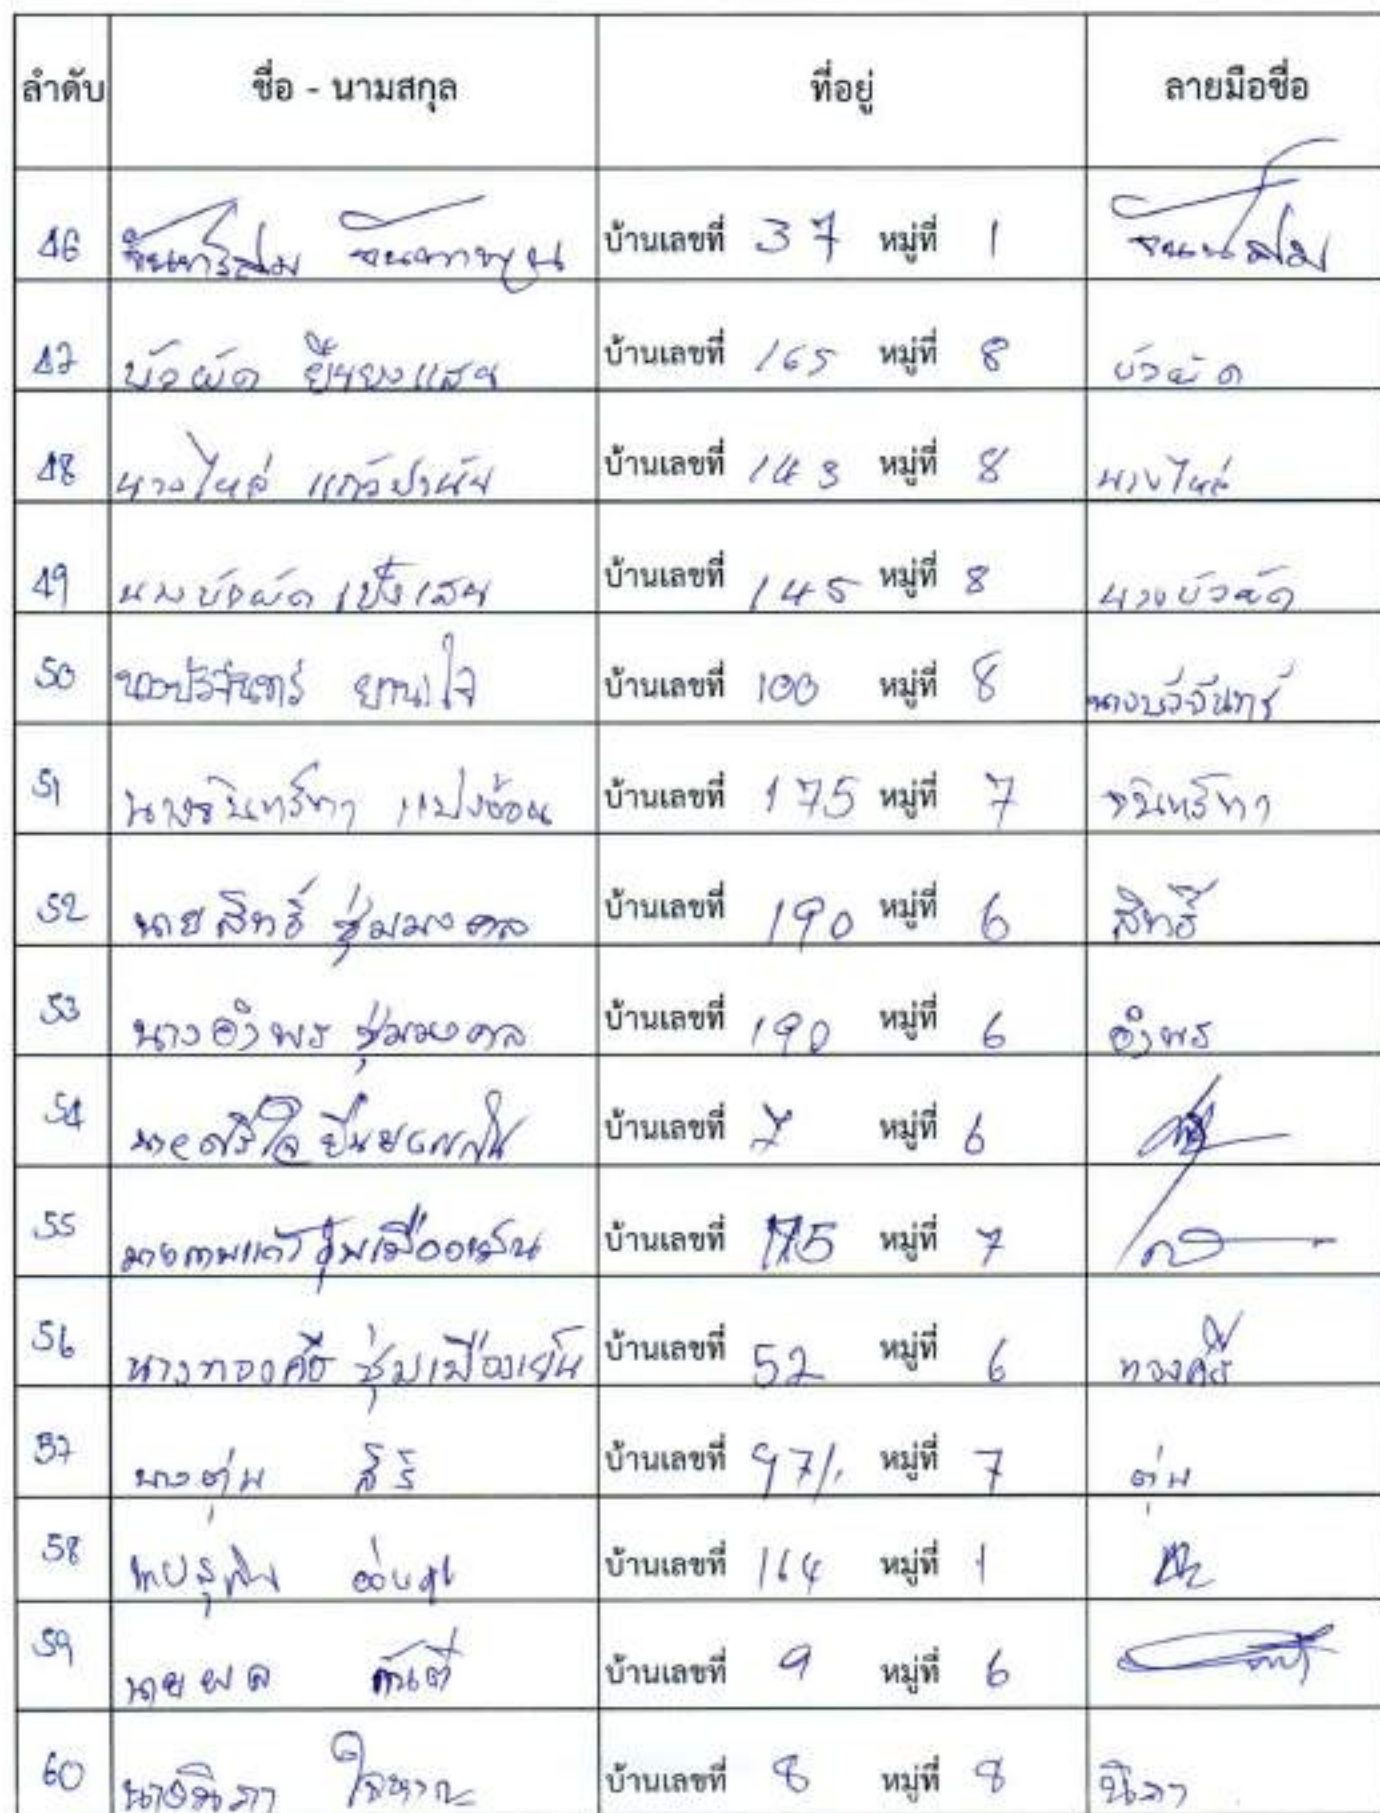 ลำดับ ชื่อ - นามสกุล ที่อยู่ ลายมือชื่อ
46 จันทร์สม บ้านเลขที่ 37 หมู่ที่ 1
47 บัวผัด ยืนยงแสน บ้านเลขที่ 165 หมู่ที่ 8 บัวผัด
48 นางไหล่ แก้วปานัน บ้านเลขที่ 143 หมู่ที่ 8 นางไหล่
49 นางบัวผัด เป็งเสน บ้านเลขที่ 145 หมู่ที่ 8 นางบัวผัด
50 นางบัวจันทร์ ยานใจ บ้านเลขที่ 100 หมู่ที่ 8 นางบัวจันทร์
51 บ้านเลขที่ 175 หมู่ที่ 7
52 นายสิทธิ์ ชุ่มมงคล บ้านเลขที่ 190 หมู่ที่ 6 สิทธิ์
53 นางอำพร ชุ่มมงคล บ้านเลขที่ 190 หมู่ที่ 6 อำพร
54 บ้านเลขที่ 7 หมู่ที่ 6
55 บ้านเลขที่ 175 หมู่ที่ 7
56 นางทองศรี ชุ่มเมืองเย็น บ้านเลขที่ 52 หมู่ที่ 6 ทองศรี
57 นางตุ่น สิริ บ้านเลขที่ 97/1 หมู่ที่ 7 ตุ่น
58 บ้านเลขที่ 164 หมู่ที่ 1
59 นายผล บ้านเลขที่ 9 หมู่ที่ 6
60 บ้านเลขที่ 8 หมู่ที่ 8 นิภา